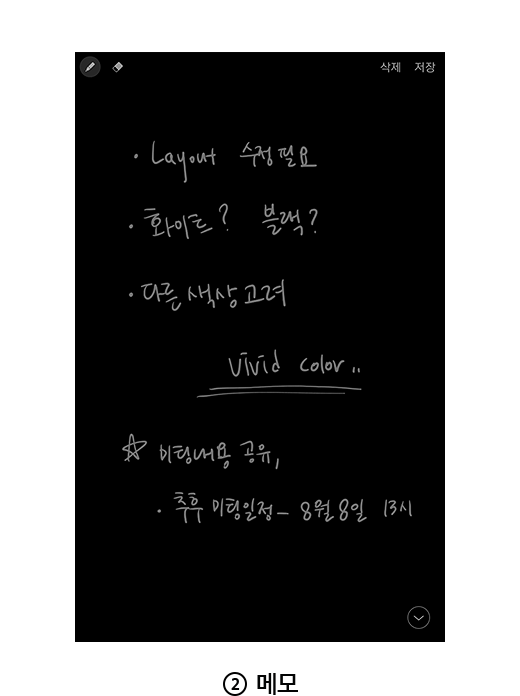 삭제 저장
· Layout 수정 필요
· 화이트? 블랙?
· 다른 색상 고려
vivid color..
☆ 미팅내용 공유,
· 추후 미팅일정 – 8월 8일 13시
② 메모